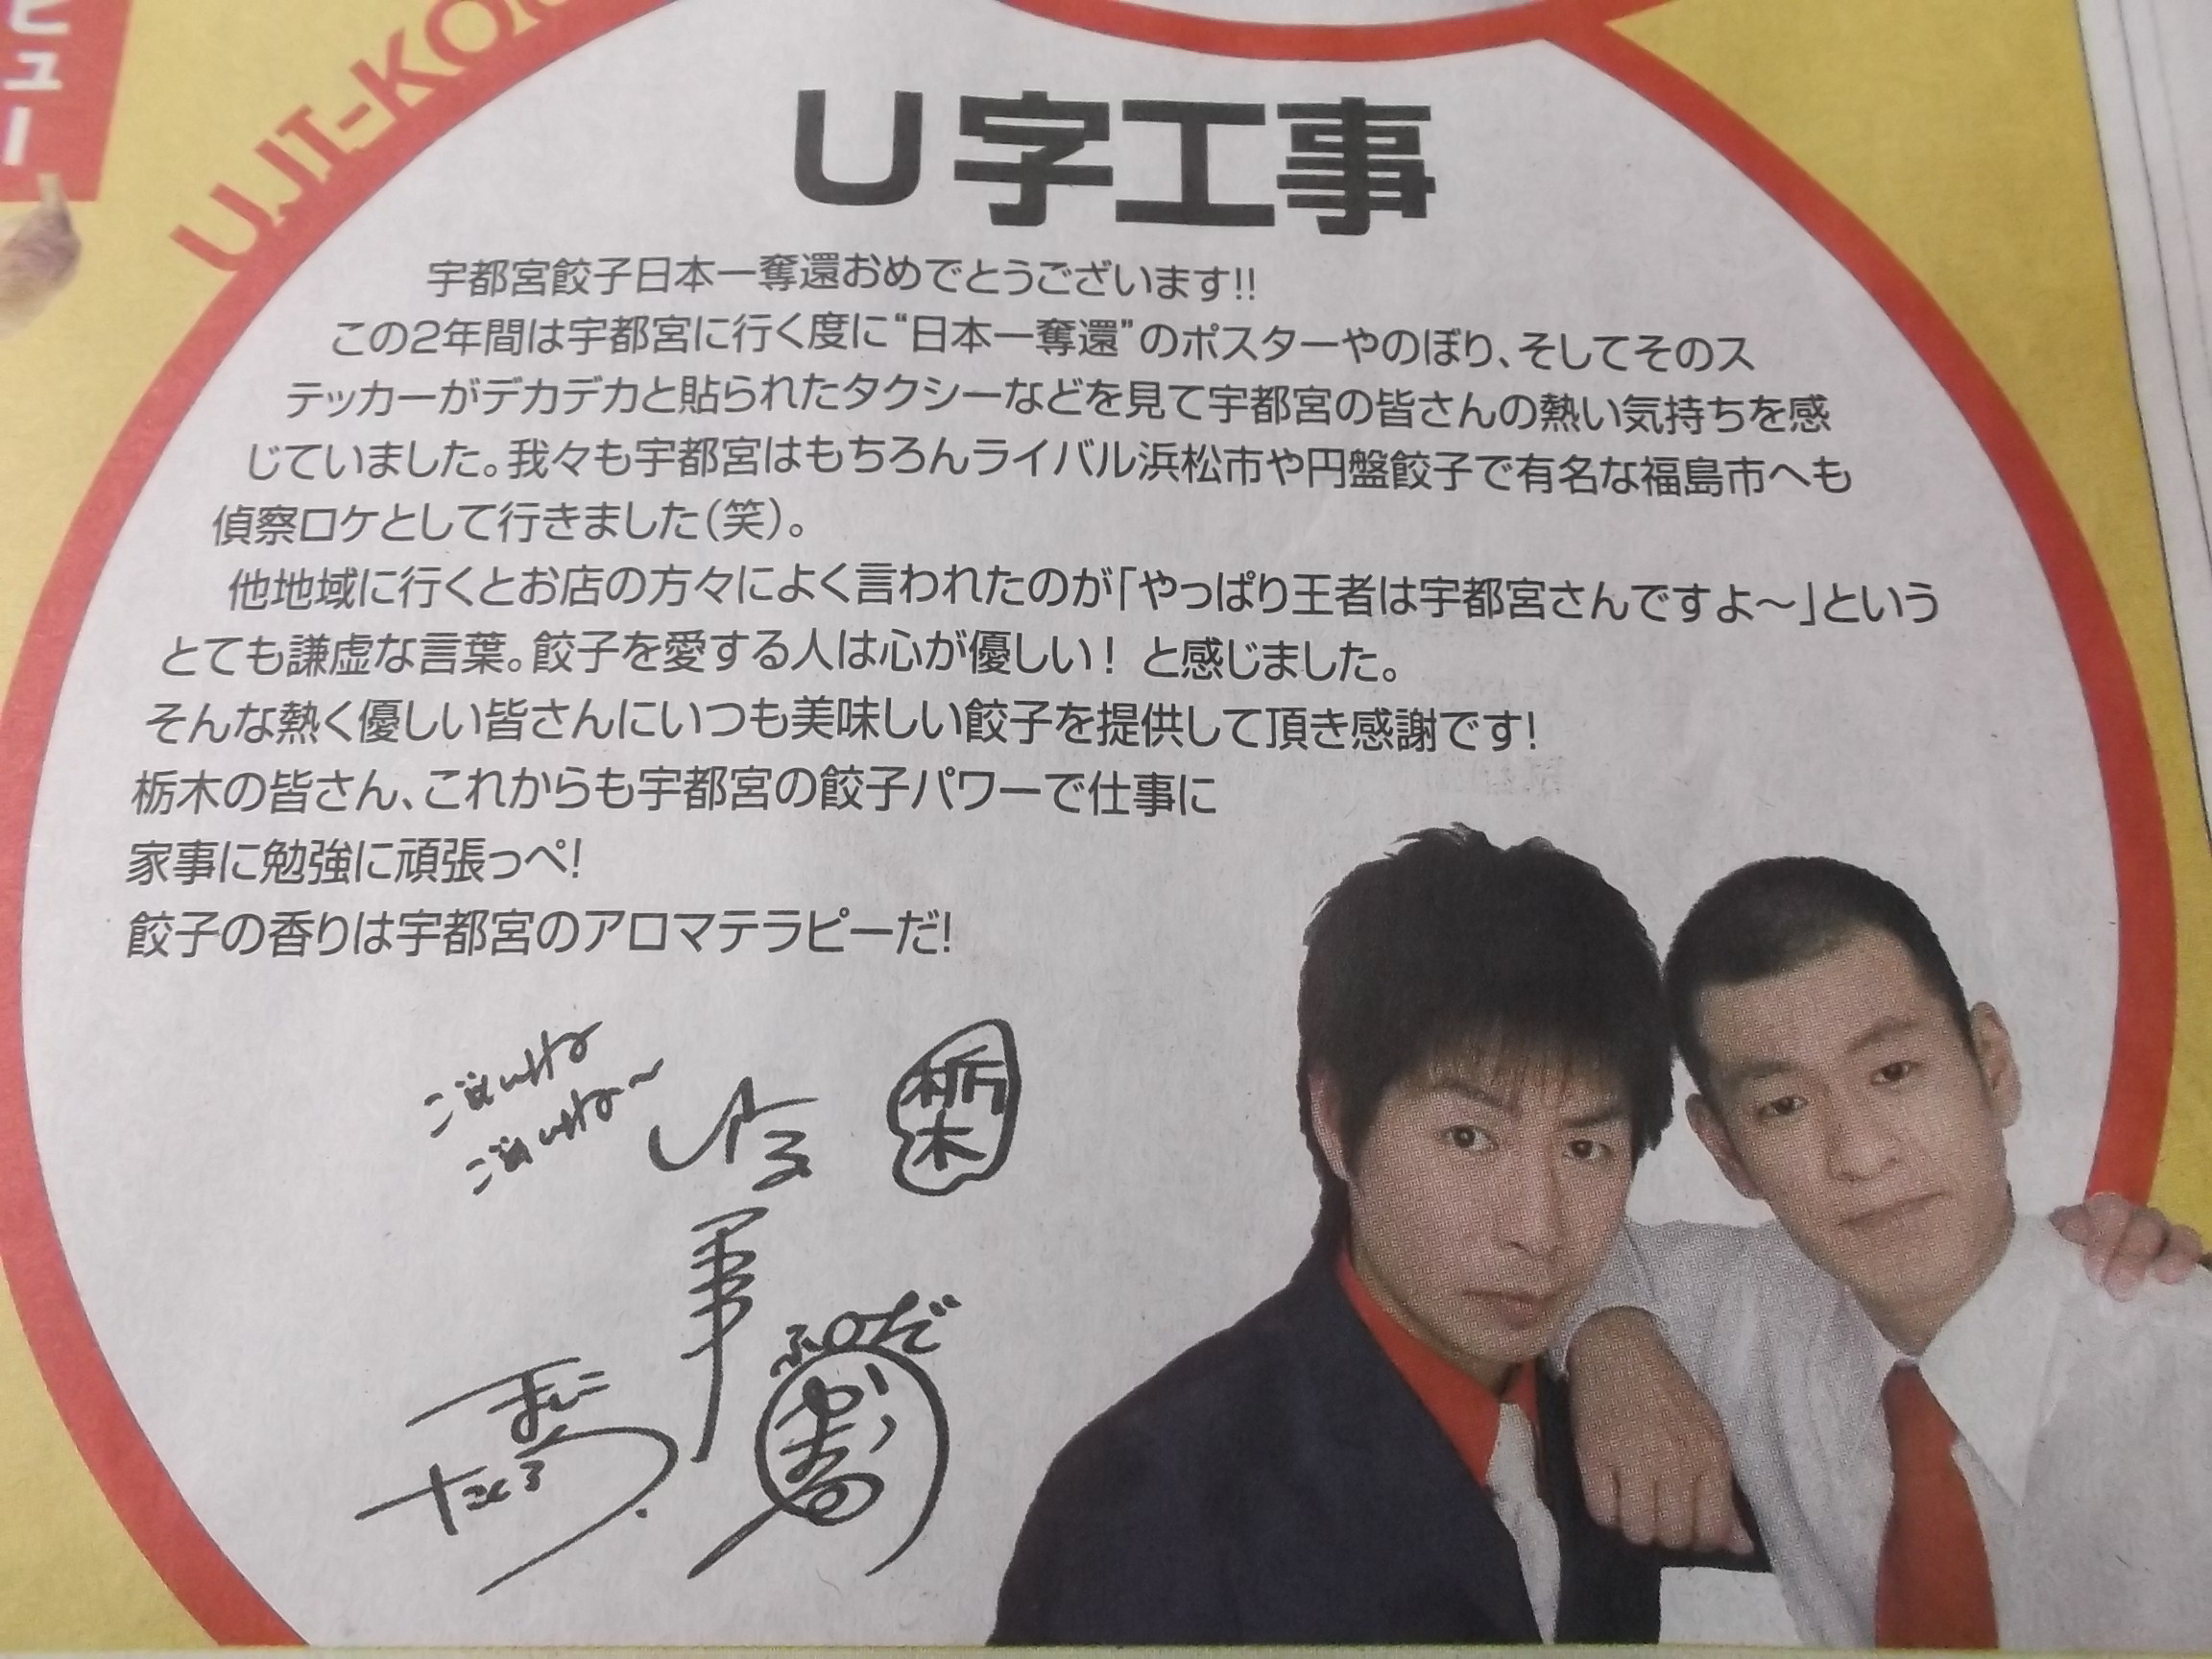 ビュー
UJI-KO
U字工事
宇都宮餃子日本一奪還おめでとうございます!!
この2年間は宇都宮に行く度に“日本一奪還”のポスターやのぼり、そしてそのス
テッカーがデカデカと貼られたタクシーなどを見て宇都宮の皆さんの熱い気持ちを感
じていました。我々も宇都宮はもちろんライバル浜松市や円盤餃子で有名な福島市へも
偵察ロケとして行きました(笑)。
他地域に行くとお店の方々によく言われたのが「やっぱり王者は宇都宮さんですよ～」という
とても謙虚な言葉。餃子を愛する人は心が優しい! と感じました。
そんな熱く優しい皆さんにいつも美味しい餃子を提供して頂き感謝です!
栃木の皆さん、これからも宇都宮の餃子パワーで仕事に
家事に勉強に頑張っぺ!
餃子の香りは宇都宮のアロマテラピーだ!
ごめんね
ごめんね～
U字
工事
栃木